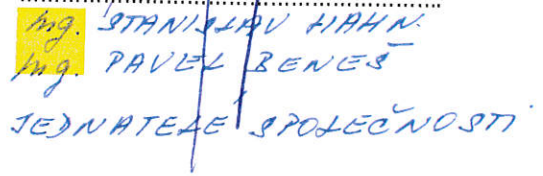 Ing. STANISLAV HAHN.
Ing. PAVEL BENEŠ
JEDNATELÉ SPOLEČNOSTI